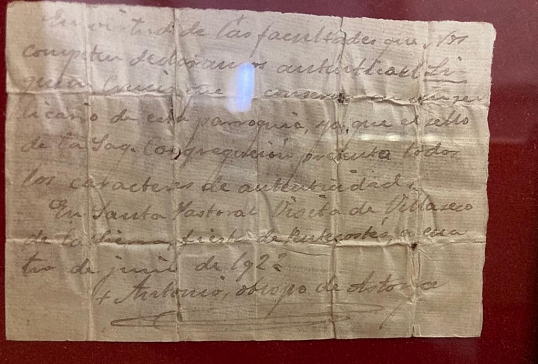 En virtud de las facultades que Nos
competen declaramos auténtica el Li
gnum Crucis que se conserva en un re
licario de esta parroquia, ya que el sello
de la Sag. Congregación, presenta todos
los caracteres de autenticidad.
En Santa Pastoral Visita de Villaseco
de la Sierra, fiesta de Pentecostés, a cua
tro de junio de 192
+ Antonio, obispo de Astorga